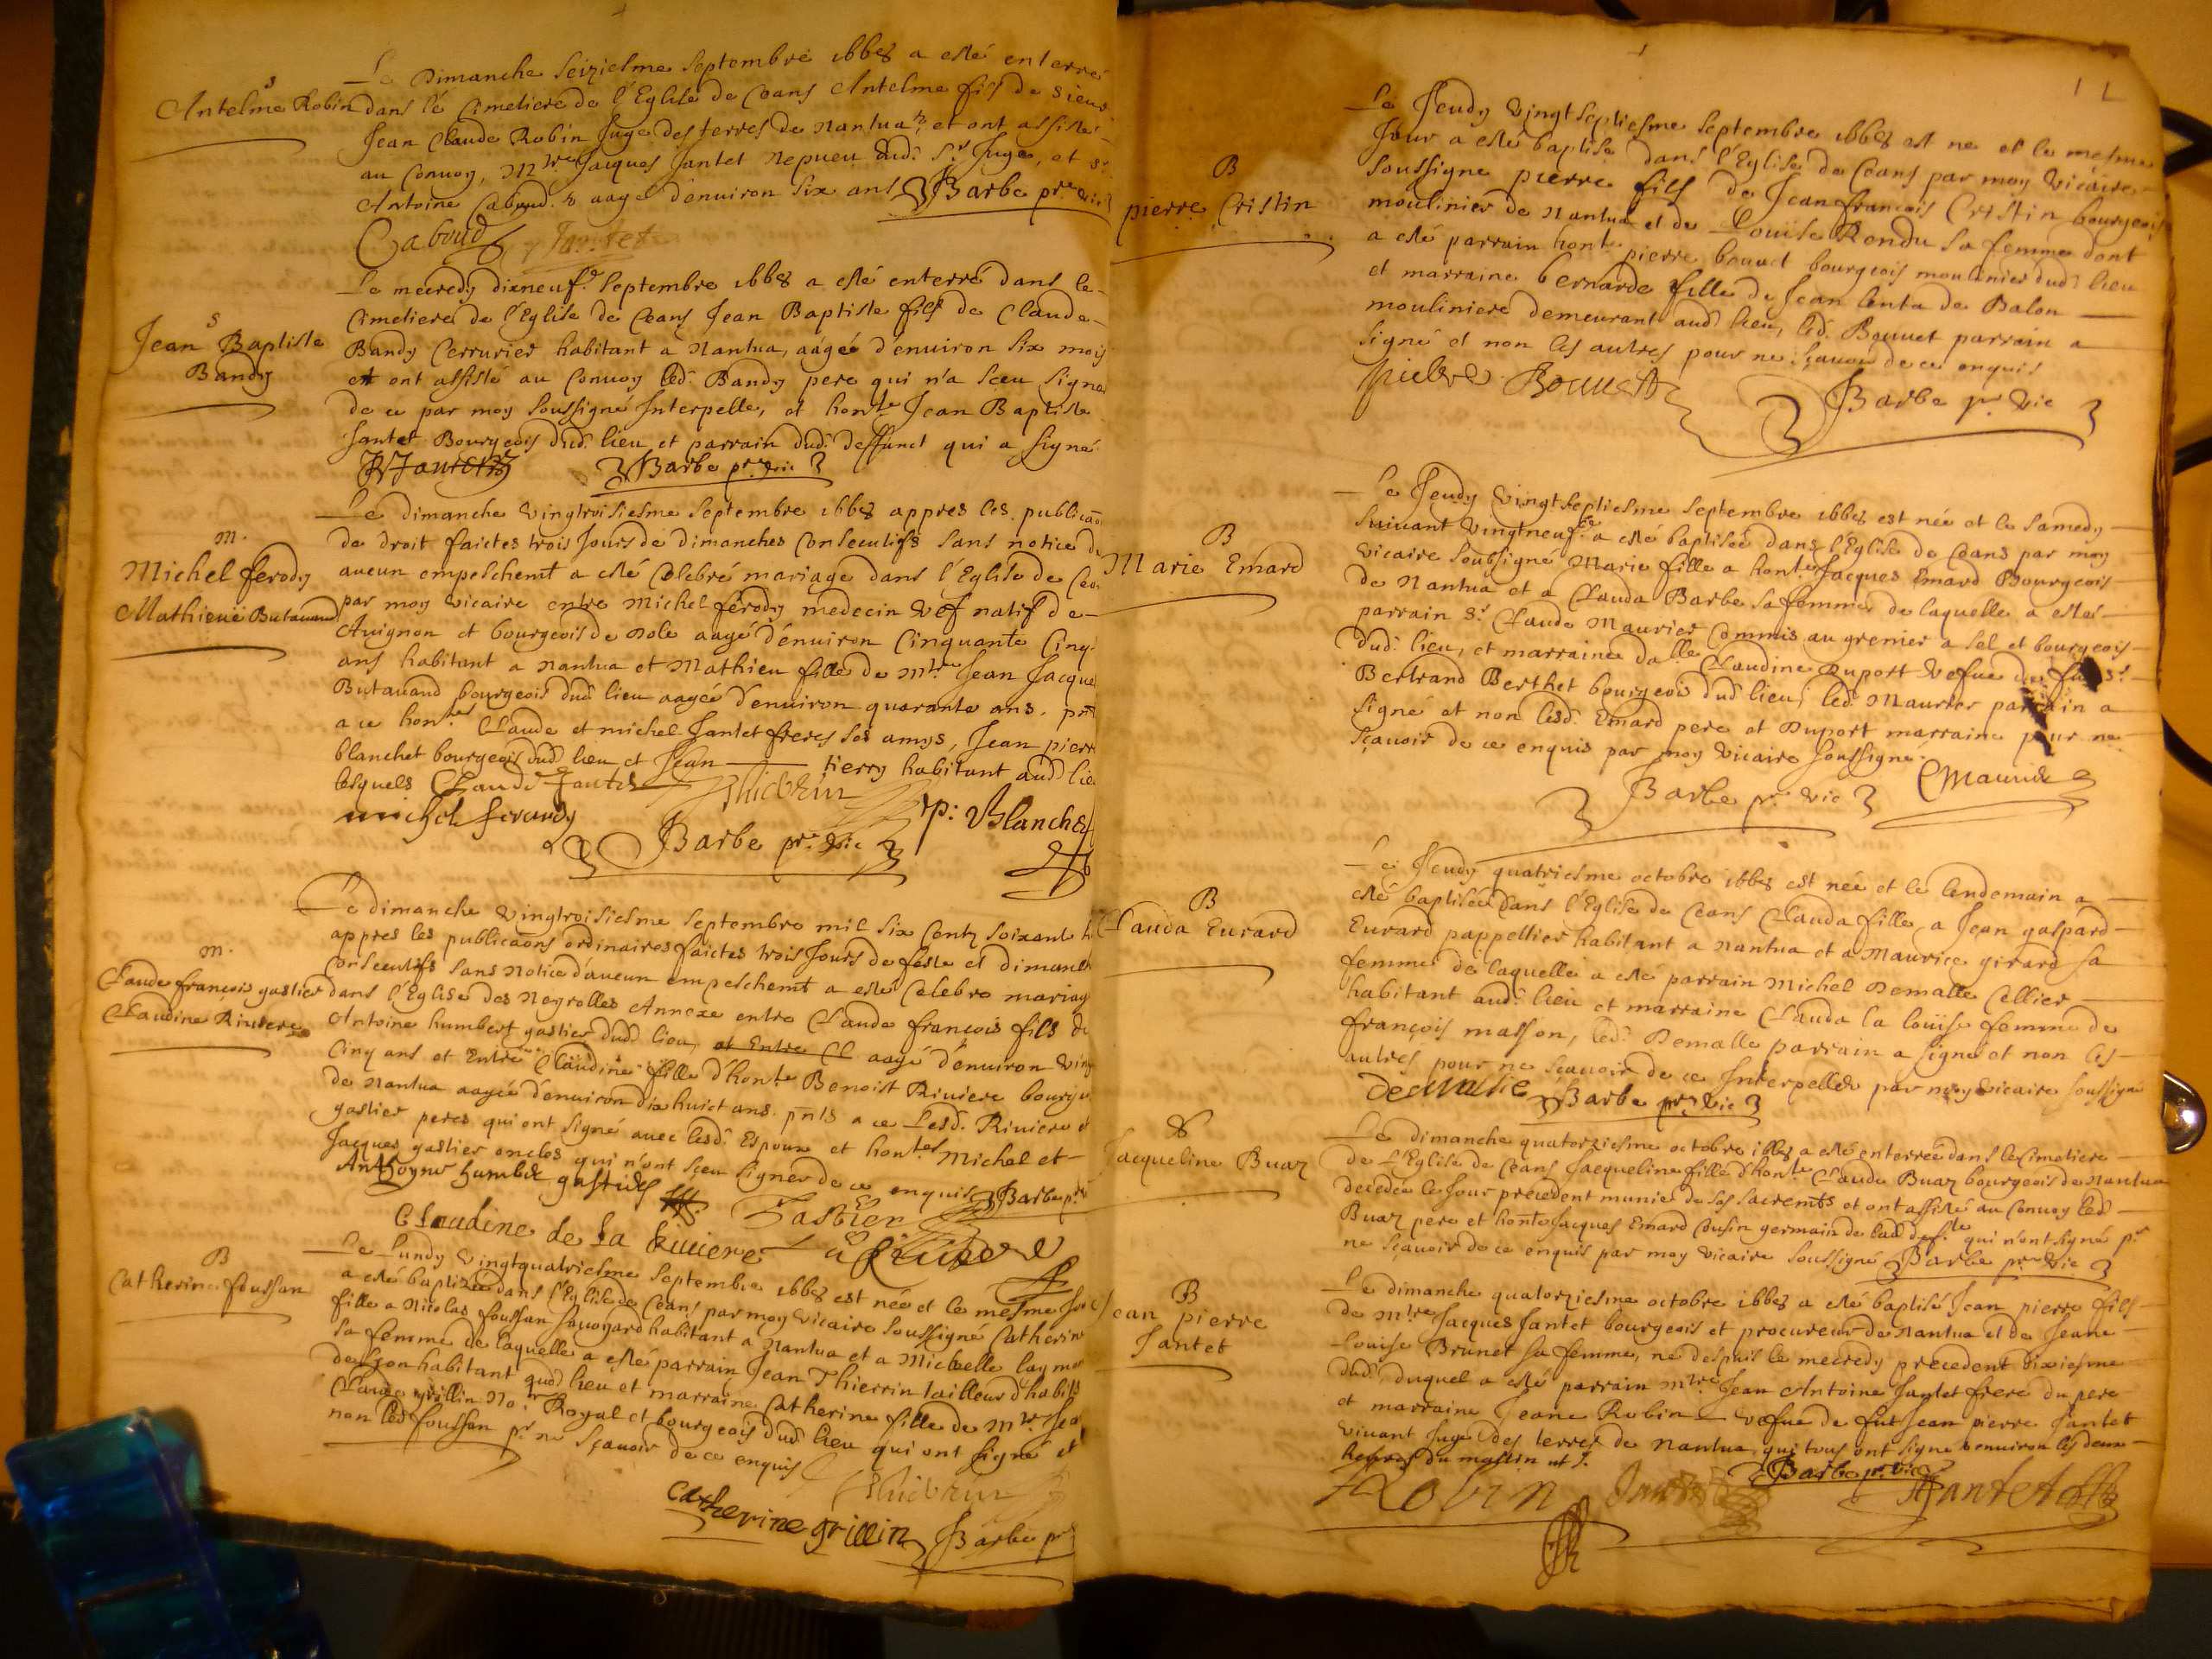 S
Antelme Robin
Le Dimanche seiziesme septembre 1668 a esté enterré
dans le Cimetiere de l'Eglise de Ceans Antelme fils de sieur
Jean Claude Robin Juge des terres de Nantua et ont assisté
au Convoy, Mtre Jacques Jantet Nepueu dud. Sr Juge, et Sr
Antoine Caboud aagé d'enuiron six ans Barbe pr vic
Caboud Jantet
S
Jean Baptiste
Bandy
Le mecredy dixneufe septembre 1668 a esté enterré dans le
Cimetiere de l'Eglise de Ceans Jean Baptiste fils de Claude
Bandy Serrurier habitant a Nantua, aagée d'enuiron six mois
et ont assisté au Conuoy led. Bandy pere qui n'a sceu signer
de ce par moy soussigné Interpelle, et honte Jean Baptiste
Jantet Bourgeois dud. lieu et parrain dud. deffunct qui a signé
Jantet Barbe pr vic
m.
Michel ferody
Mathieue Butauand
Le dimanche vingtroisiesme septembre 1668 appres les publicaons
de droit faictes trois Jours de dimanches Consecutifs sans notice d
aucun empeschemt a esté Celebré mariage dans l'Eglise de Cea
par moy vicaire entre Michel ferody medecin vef natif de
Auignon et bourgeois de Dole aagé d'enuiron Cinquante Cinq
ans habitant a Nantua et Mathieu fille de Mtre Jean Jacques
Butauand bourgeois dud. lieu aagée d'enuiron quarante ans. pnts
a ce hontes Claude et michel Jantet freres ses amys, Jean pierre
blanchet bourgeois dud. lieu et Jean ——— tierry habitant aud. lieu
lesquels Claude Jantet Thiebrin
michel ferody p: Blanchet
Barbe pr vic
m.
Claude françois gastier
Claudine Riuiere
Le dimanche vingtroisiesme septembre mil six Centz soixant h
appres les publicaons ordinaires faictes trois Jours de feste et dimanch
Consecutifs sans notice d'aucun empeschemt a esté Celebré mariag
dans l'Eglise des Neyrolles Annexe entre Claude françois fils d
Antoine humbert gastier dud. lieu, et Entre Cl aagé d'enuiron ving
Cinq ans et Entre Claudine fille d'honte Benoist Riuiere bourge
de Nantua aagée d'enuiron dix huict ans. pnts a ce Lesd. Riuiere et
gastier peres qui ont signé auec lesd. Espoux et hontes Michel et
Jacques gastier oncles qui n'ont sceu signer de ce enquis Barbe pr
Anthoyne humber gastier Gastier
Claudine de la Riuiere
B
Catherine foussan
Le Lundy vingtquatriesme septembre 1668 est née et le mesme Jour
a esté baptizée dans l'Eglise de Ceans par moy vicaire soussigné Catherine
fille a Nicolas foussan sauoyard habitant a Nantua et a Michelle laymo
sa femme de laquelle a esté parrain Jean Thierrin tailleur d'habits
de Lyon habitant aud. lieu et marraine Catherine fille de Mtre Jea
Claude grillin Nore Royal et bourgeois dud. lieu qui ont signé et
non led. foussan pr ne sçauoir de ce enquis
Thiebrin
Catherine grillin Barbe pr
B
pierre Cristin
Le Jeudy vingt septiesme septembre 1668 est ne et le mesme
Jour a esté baptisé dans l'Eglise de Ceans par moy vicaire
soussigné pierre fils de Jean françois Cristin bourgeois
moulinier de Nantua et de Louise Rendu sa femme dont
a esté parrain honte pierre bouuet bourgeois moulinier dud. lieu
et marraine bernarde fille de Jean lenta de Balon
mouliniere demeurant aud. lieu, led. Bouuet parrain a
signé et non les autres pour ne sçauoir de ce enquis
pierre Bouuet Barbe pr vic
B
Marie Emard
Le Jeudy vingt septiesme septembre 1668 est née et le samedy
suiuant vingtneufe a esté baptisée dans l'Eglise de Ceans par moy
vicaire soubsigné Marie fille a honte Jacques Emard Bourgeois
de Nantua et a Clauda Barbe sa femme de laquelle a esté
parrain Sr Claude Maurier Commis au grenier a sel et bourgeois
dud. lieu, et marraine dalle Claudine Duport vefue de fu Sr
Bertrand Berthet bourgeois dud. lieu, led. Maurier parrain a
signé et non lesd. Emard pere et Duport marraine pour ne
sçauoir de ce enquis par moy vicaire soussigné.
Barbe pr vic CMaurier
B
Clauda Eurard
Le Jeudy quatriesme octobre 1668 est née et le lendemain a
esté baptisée dans l'Eglise de Ceans Clauda fille a Jean gaspard
Eurard pappellier habitant a Nantua et a Maurice girard sa
femme de laquelle a esté parrain Michel Demalle Cellier
habitant aud. lieu et marraine Clauda la loüise femme de
françois masson, led. Demalle parrain a signé et non les
autres pour ne sçauoir de ce Interpelles par moy vicaire soussigné
Demalle Barbe pr vic
S
Jacqueline Buaz
Le dimanche quatorziesme octobre 1668 a esté enterrée dans le Cimetiere
de l'Eglise de Ceans Jacqueline fille d'honte Claude Buaz bourgeois de Nantua
decedée le Jour precedent munie de ses sacremts et ont assisté au Conuoy led.
Buaz pere et honte Jacques Emard Cousin germain de lad. defte qui n'ont signé pr
ne sçauoir de ce enquis par moy vicaire soussigné Barbe pr vic
B
Jean pierre
Jantet
Le dimanche quatorziesme octobre 1668 a esté baptisé Jean pierre fils
de Mtre Jacques Jantet bourgeois et procureur de Nantua et de Jeane
Louise Brunet sa femme, né despuis le mecredy precedent dixiesme
dud. duquel a esté parrain Mtre Jean Antoine Jantet frere du pere
et marraine Jeane Robin vefue de fut Jean pierre Jantet
viuant Juge des terres de Nantua, qui tous ont signé enuiron les deux
heures du mattin ut s.
Barbe pr vic
J Robin Jantet Jantet